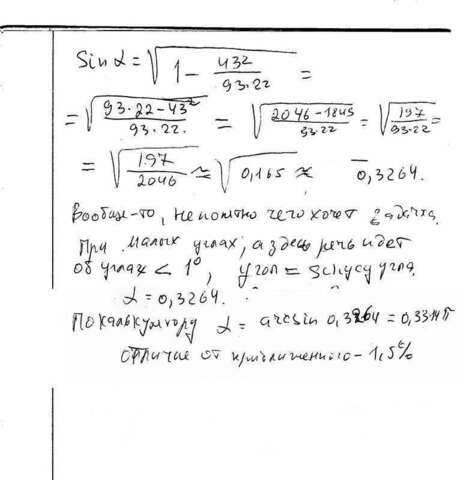 Sin α = √(1 − 43²/(93·22)) =
= √((93·22−43²)/(93·22.)) = √((2046−1849)/(93·22)) = √(197/(93·22)) =
= √(197/2046) ≈ √0,165 ≈ 0,3264.
Вообще-то, непонятно чего хочет задачка.
При малых углах, а здесь речь идет
об углах < 1°, угол = синусу угла.
α = 0,3264.
По калькулятору α = arcsin 0,3264 = 0,33
отличие от приближенного – 1,5%